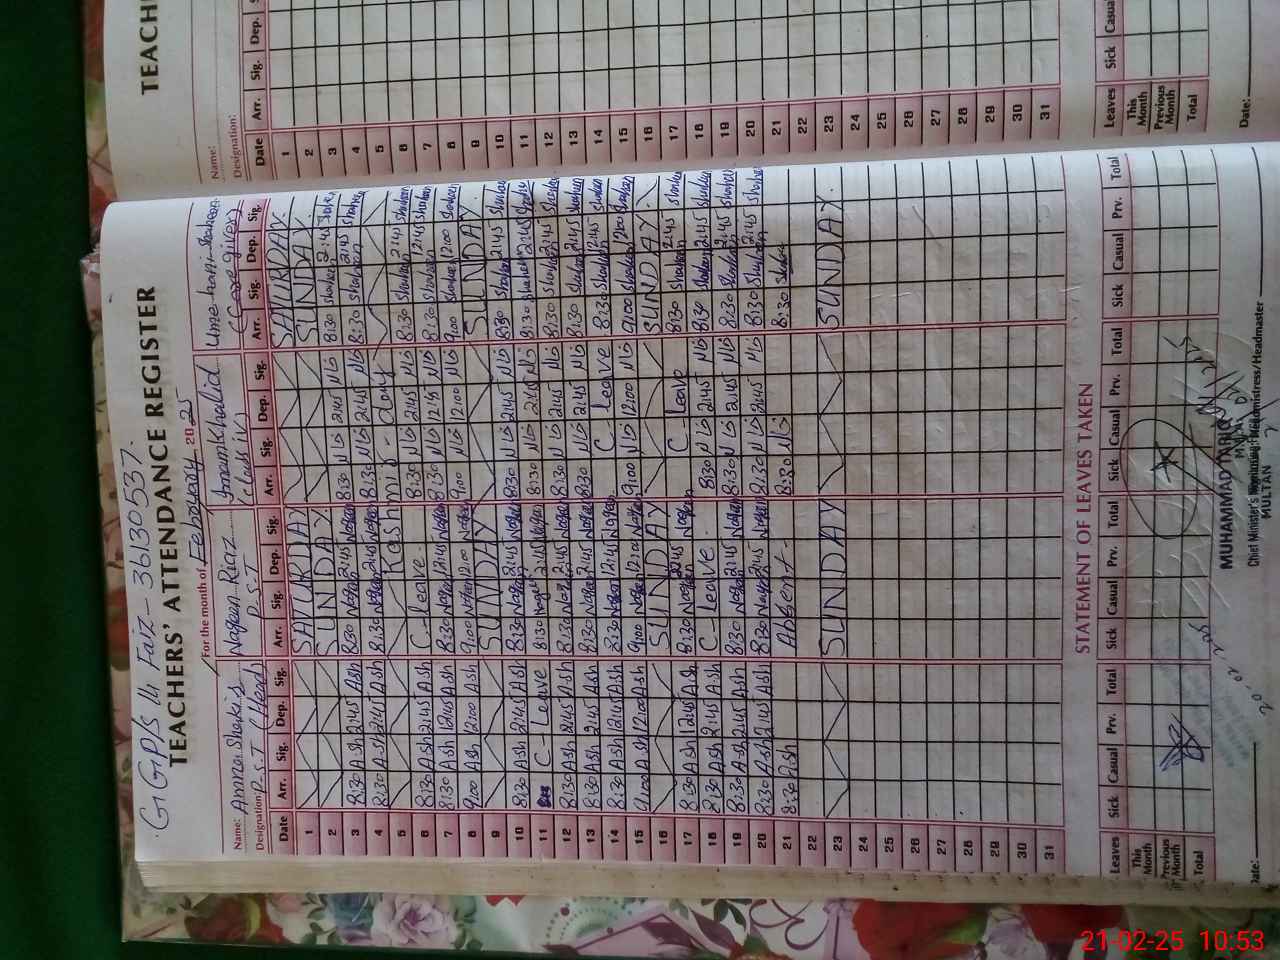 GGP/S 14 Faiz - 3613053
TEACHERS' ATTENDANCE REGISTER
For the month of February 2025
Name: Amna Sheikh Nageen Riaz Imam Khalid Ume hani
Designation: P.S.T (Head) P.S.T (Care giver)
Date Arr. Sig. Dep. Sig. Arr. Sig. Dep. Sig. Arr. Sig. Dep. Sig. Arr. Sig. Dep. Sig.
1 SATURDAY SATURDAY
2 SUNDAY SUNDAY
3 8:30 Ash 2:45 Ash 8:30 Nageen 2:45 Nageen 8:30 2:45 8:30 Shaheen 2:45
4 8:30 Ash 2:45 Ash 8:30 Nageen 2:45 Nageen 8:30 2:45 8:30 Shaheen 2:45 Shaheen
5 Kashmir - day
6 8:30 Ash 2:45 Ash C - leave 8:30 2:45 8:30 Shaheen 2:45 Shaheen
7 8:30 Ash 12:45 Ash 8:30 Nageen 12:45 Nageen 8:30 12:45 8:30 Shaheen 12:45 Shaheen
8 9:00 Ash 12:00 Ash 9:00 Nageen 12:00 Nageen 9:00 12:00 9:00 Shaheen 12:00 Shaheen
9 SUNDAY SUNDAY
10 8:30 Ash 2:45 Ash 8:30 Nageen 2:45 Nageen 8:30 2:45 8:30 Shaheen 2:45 Shaheen
11 C - Leave 8:30 Nageen 2:45 Nageen 8:30 2:45 8:30 Shaheen 2:45 Shaheen
12 8:30 Ash 2:45 Ash 8:30 Nageen 2:45 Nageen 8:30 2:45 8:30 Shaheen 2:45 Shaheen
13 8:30 Ash 2:45 Ash 8:30 Nageen 2:45 Nageen 8:30 2:45 8:30 Shaheen 2:45 Shaheen
14 8:30 Ash 12:45 Ash 8:30 Nageen 12:45 Nageen C - Leave 8:30 Shaheen 12:45 Shaheen
15 9:00 Ash 12:00 Ash 9:00 Nageen 12:00 Nageen 9:00 12:00 9:00 Shaheen 12:00 Shaheen
16 SUNDAY SUNDAY
17 8:30 Ash 2:45 Ash 8:30 Nageen 2:45 Nageen C - Leave 8:30 Shaheen 2:45 Shaheen
18 8:30 Ash 2:45 Ash C - Leave 8:30 2:45 8:30 Shaheen 2:45 Shaheen
19 8:30 Ash 2:45 Ash 8:30 Nageen 2:45 Nageen 8:30 2:45 8:30 Shaheen 2:45 Shaheen
20 8:30 Ash 2:45 Ash 8:30 Nageen 2:45 Nageen 8:30 2:45 8:30 Shaheen 2:45 Shaheen
21 8:30 Ash Absent 8:30 8:30 Shaheen
22
23 SUNDAY SUNDAY
24
25
26
27
28
29
30
31
STATEMENT OF LEAVES TAKEN
Leaves Sick Casual Prv. Total Sick Casual Prv. Total Sick Casual Prv. Total Sick Casual Prv. Total
This Month
Previous Month
Total
MUHAMMAD TARIQ
Chief Minister's
MULTAN
Date: Headmistress/Headmaster
TEACH
Name:
Designation:
Date Arr. Sig. Dep. S
1
2
3
4
5
6
7
8
9
10
11
12
13
14
15
16
17
18
19
20
21
22
23
24
25
26
27
28
29
30
31
Leaves Sick Casua
This Month
Previous Month
Total
Date:
21-02-25 10:53